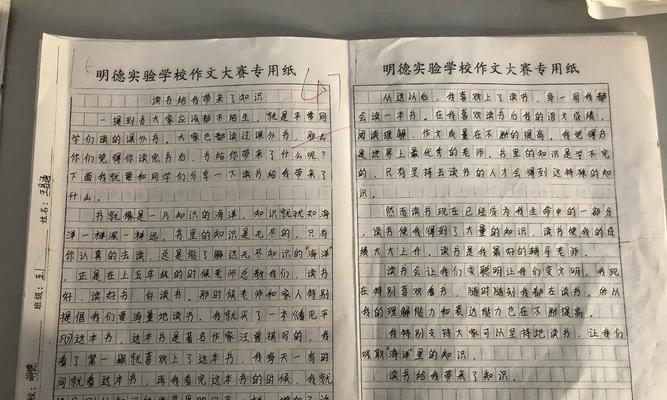 明德实验学校作文大赛专用纸
47
读书给我带来了知识
一提到书大家应该都不陌生，就是平常同
学们读的课外书。大家也都读过课外书，那么
你们觉得你读完书后，书给你带来了什么呢？
下面我就要和同学们分享一下读书给我带来了
什么。
书就像是一片知识的海洋，知识就犹如海
洋一样深一样远。书里的知识是无尽的，只有
你认真的去读，总是能了解这无尽知识的"海洋"
正是在上五年级的时候老师总教我们，读书
好、读好书、好读书。那时候老师和家人特别
提倡我们要海量地读书，我就买了一本《
这本书，这本书是著名作家汪曾祺写的，我
看了第一眼就喜欢上了这本书，我每天一有时
间就看这本书，再我看完这本书的时候，我就
姓名：
班级：五1
明德实验学校作文大赛专用纸
从这以后，我喜欢上了读书，每一周我都
会读一本书。在我喜欢读书后我的语文成绩，
阅读理解、作文质量在不断的提高。我觉得书
是世界上最优秀的老师，书里的知识是学不完
的，只有坚持去读书的人才会得到这特殊的知
识。
然而读书现在已经成为我生命中的一部分
，读书使我得到了大量的知识，读书使我的成
绩大大上升，读书是我最好的辅导老师。
读书会让我们变聪明让我们变文明。我现
在特别喜欢看书，随时随刻我都在读书。所以
我的理解能力和表达能力也在不断提高。
我特别支持大家可以坚持地读书，让我们
吸取"海洋"里的知识。
读书给我带来了知识。